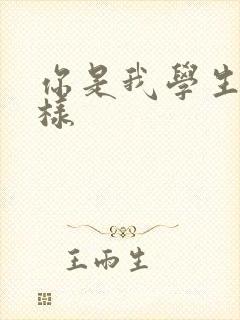 你是我學生
樣
王雨生